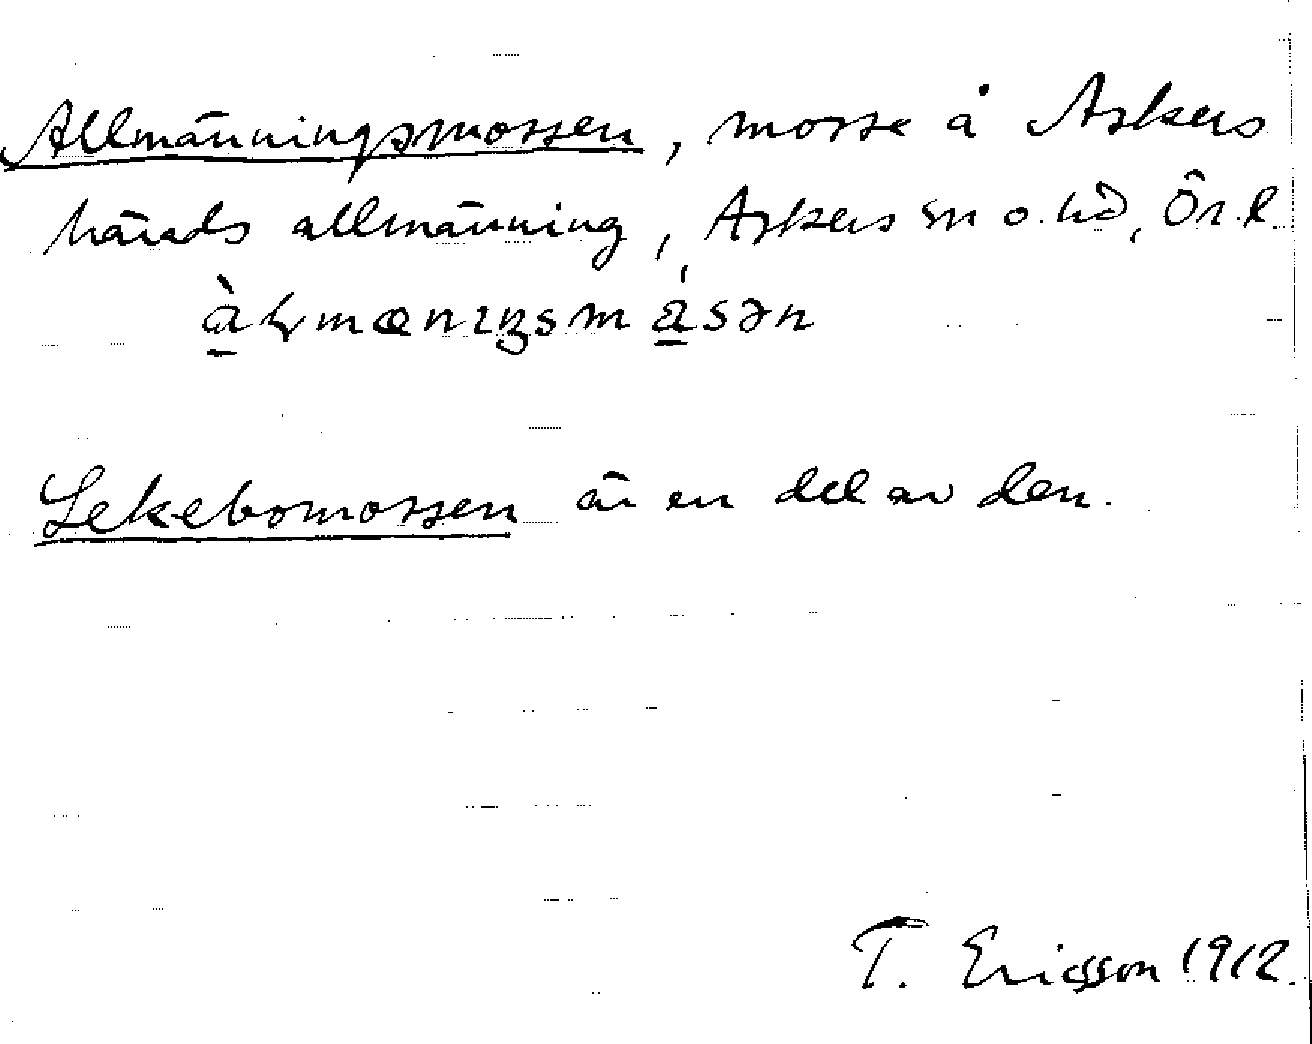 Allmänningsmossen, mosse å Askers
härads allmänning, Askers sn o. hd, Ör. l.
Lekebomossen är en del av den.
T. Ericsson 1912.